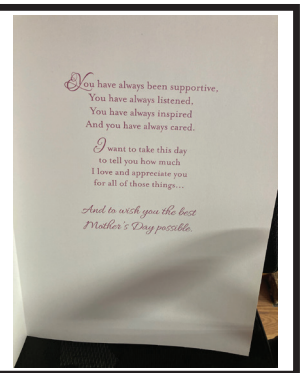 You have always been supportive,
You have always listened,
You have always inspired
And you have always cared.
I want to take this day
to tell you how much
I love and appreciate you
for all of those things...
And to wish you the best
Mother's Day possible.